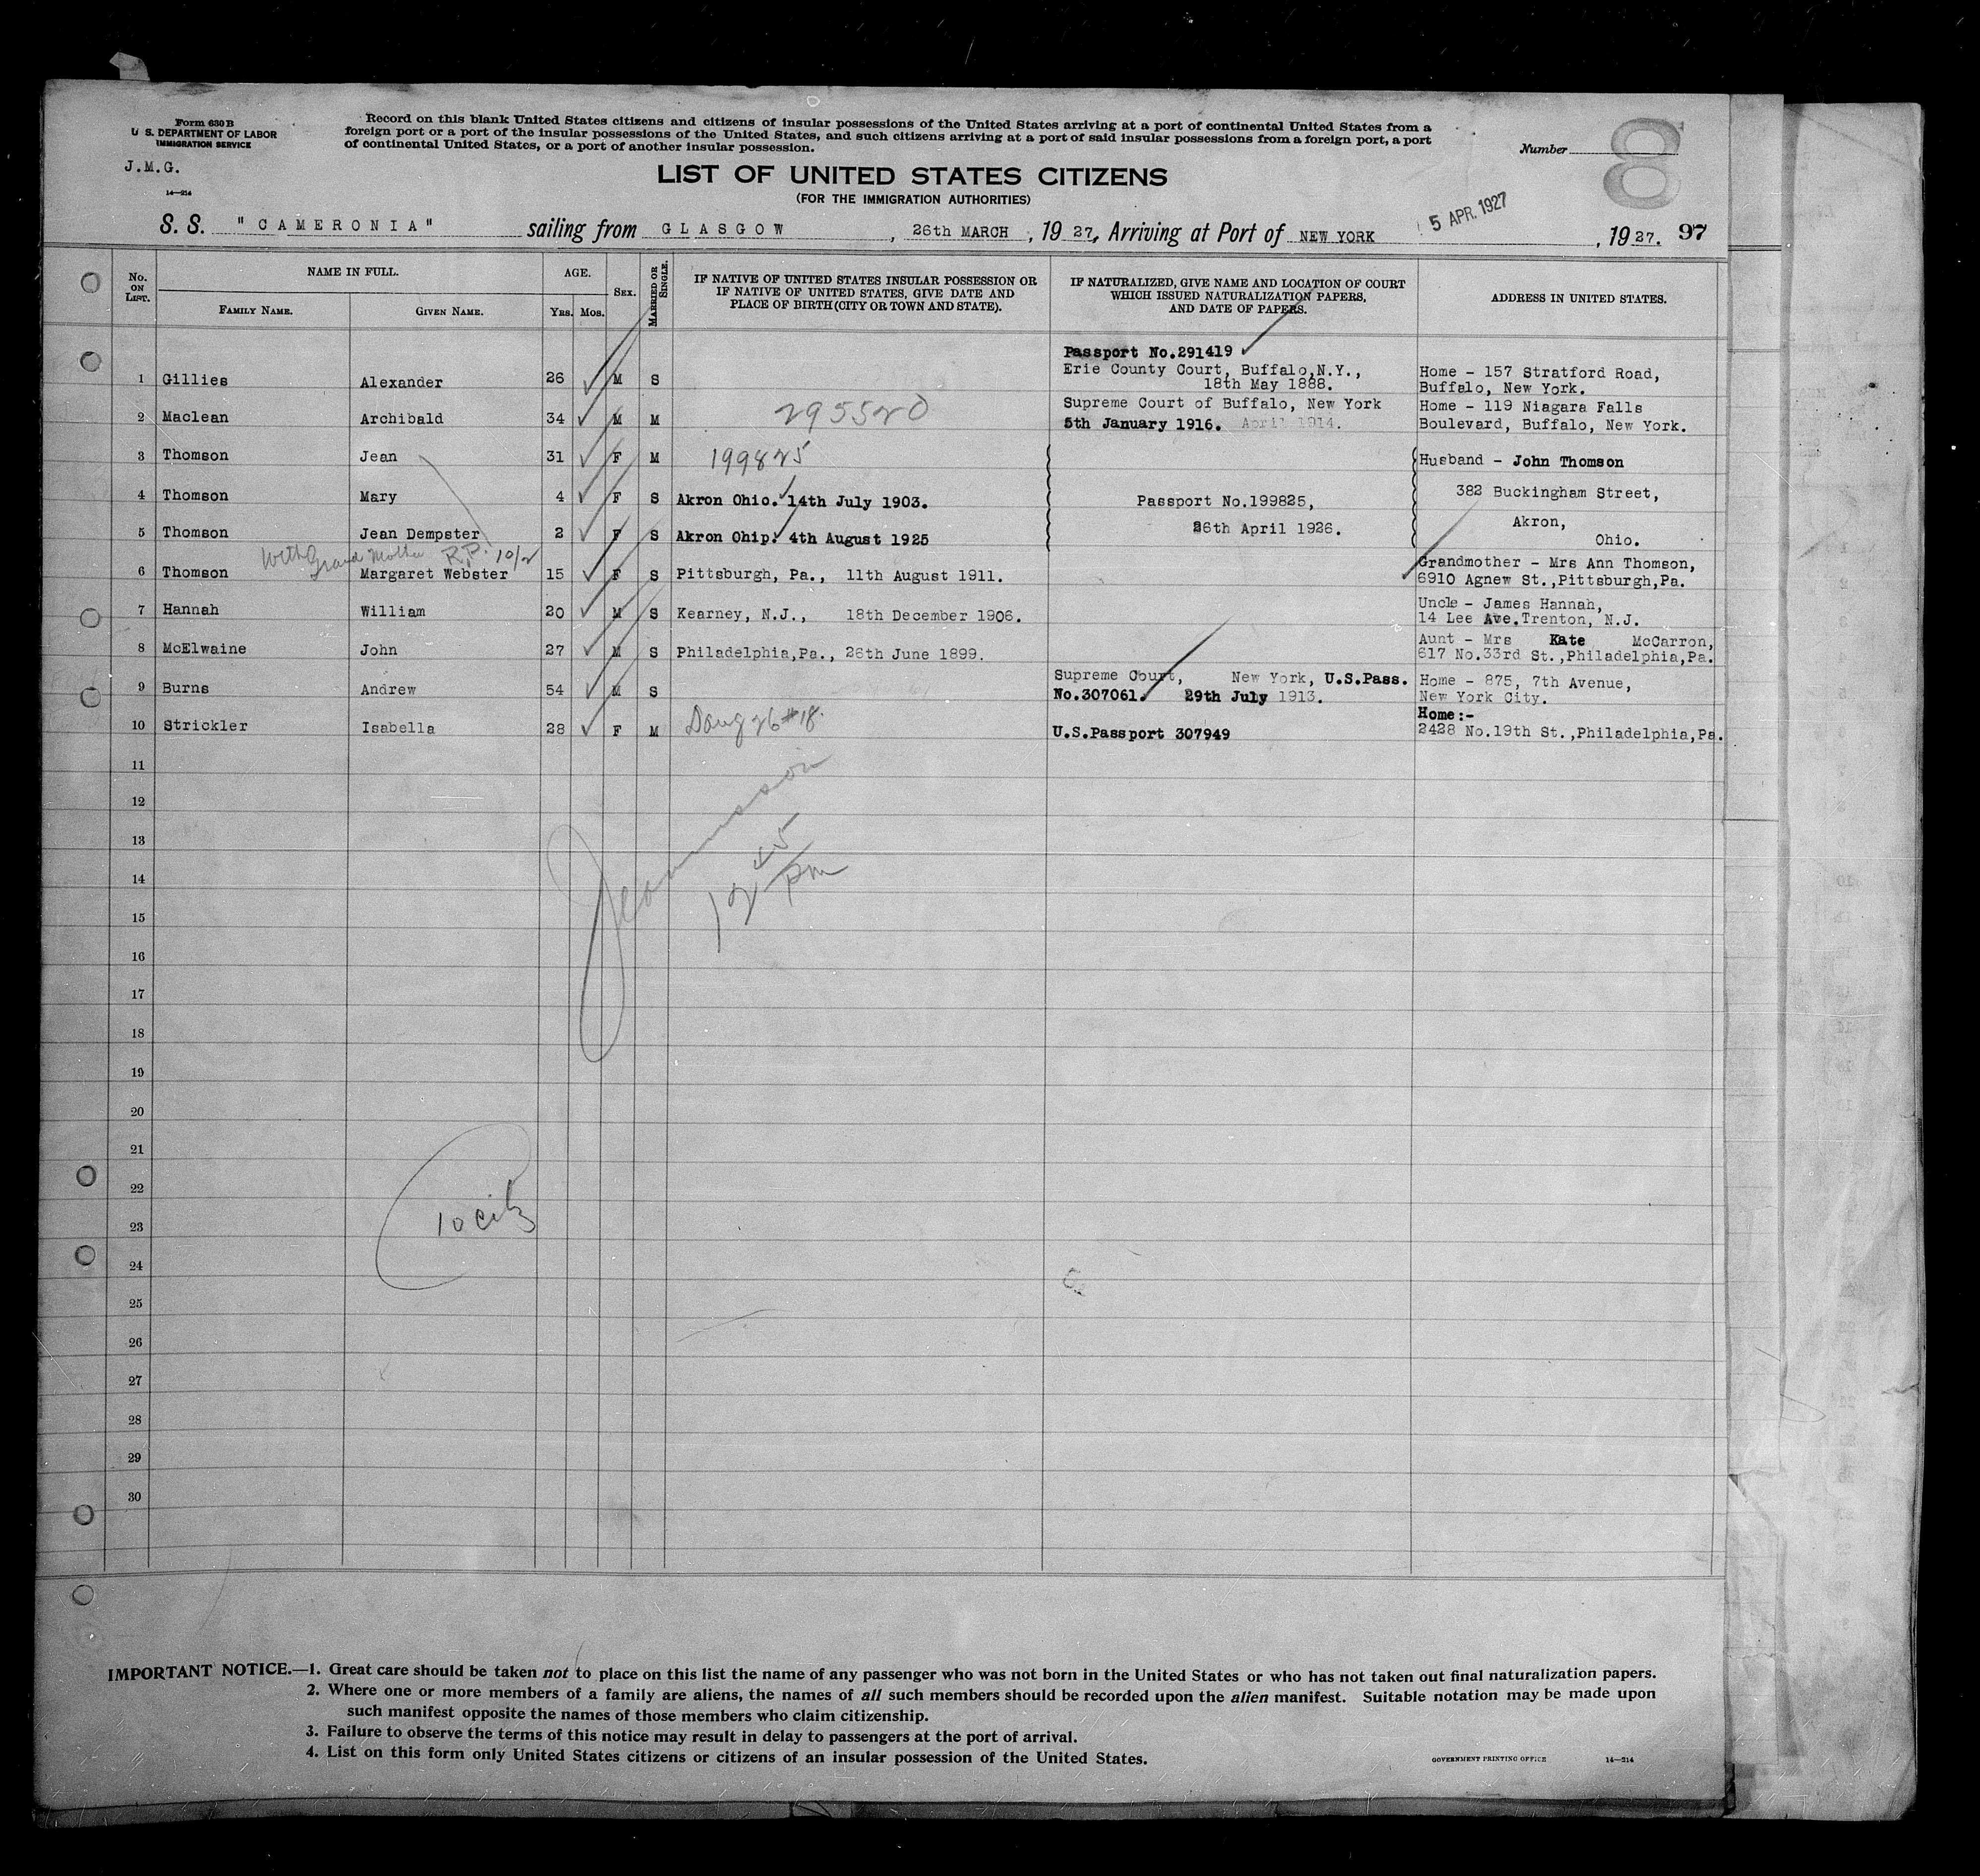 Form 630 B
U. S. DEPARTMENT OF LABOR
IMMIGRATION SERVICE
J.M.G.
14—214
Record on this blank United States citizens and citizens of insular possessions of the United States arriving at a port of continental United States from a
foreign port or a port of the insular possessions of the United States, and such citizens arriving at a port of said insular possessions from a foreign port, a port
of continental United States, or a port of another insular possession.
Number
8
LIST OF UNITED STATES CITIZENS
(FOR THE IMMIGRATION AUTHORITIES)
S. S. "CAMERONIA" sailing from GLASGOW, 26th MARCH, 19 27, Arriving at Port of NEW YORK 5 APR. 1927, 19 27. 97
No. ON LIST. NAME IN FULL. AGE. SEX. MARRIED OR SINGLE. IF NATIVE OF UNITED STATES INSULAR POSSESSION OR IF NATIVE OF UNITED STATES, GIVE DATE AND PLACE OF BIRTH (CITY OR TOWN AND STATE). IF NATURALIZED, GIVE NAME AND LOCATION OF COURT WHICH ISSUED NATURALIZATION PAPERS, AND DATE OF PAPERS. ADDRESS IN UNITED STATES.
FAMILY NAME. GIVEN NAME. Yrs. Mos.
Passport No.291419
Erie County Court, Buffalo,N.Y.,
1 Gillies Alexander 26 M S 18th May 1888. Home - 157 Stratford Road,
Buffalo, New York.
2 Maclean Archibald 34 M M 295520 Supreme Court of Buffalo, New York Home - 119 Niagara Falls
5th January 1916. April 1914. Boulevard, Buffalo, New York.
3 Thomson Jean 31 F M 199825 Husband - John Thomson
4 Thomson Mary 4 F S Akron Ohio. 14th July 1903. Passport No.199825, 382 Buckingham Street,
5 Thomson Jean Dempster 2 F S Akron Ohip. 4th August 1925 26th April 1926. Akron,
Ohio.
With Grand Mother R.P. 10/2
6 Thomson Margaret Webster 15 F S Pittsburgh, Pa., 11th August 1911. Grandmother - Mrs Ann Thomson,
6910 Agnew St.,Pittsburgh,Pa.
7 Hannah William 20 M S Kearney, N.J., 18th December 1906. Uncle - James Hannah,
14 Lee Ave.Trenton, N.J.
8 McElwaine John 27 M S Philadelphia,Pa., 26th June 1899. Aunt - Mrs Kate McCarron,
617 No.33rd St.,Philadelphia,Pa.
9 Burns Andrew 54 M S Supreme Court, New York, U.S.Pass. Home - 875, 7th Avenue,
No.307061. 29th July 1913. New York City.
10 Strickler Isabella 28 F M U.S.Passport 307949 Home:-
2428 No.19th St.,Philadelphia,Pa.
11
12
13
12 45 pm
14
15
16
17
18
19
20
21
22
10 citz
23
24
25
26
27
28
29
30
IMPORTANT NOTICE.—1. Great care should be taken not to place on this list the name of any passenger who was not born in the United States or who has not taken out final naturalization papers.
2. Where one or more members of a family are aliens, the names of all such members should be recorded upon the alien manifest. Suitable notation may be made upon
such manifest opposite the names of those members who claim citizenship.
3. Failure to observe the terms of this notice may result in delay to passengers at the port of arrival.
4. List on this form only United States citizens or citizens of an insular possession of the United States.
GOVERNMENT PRINTING OFFICE 14—214